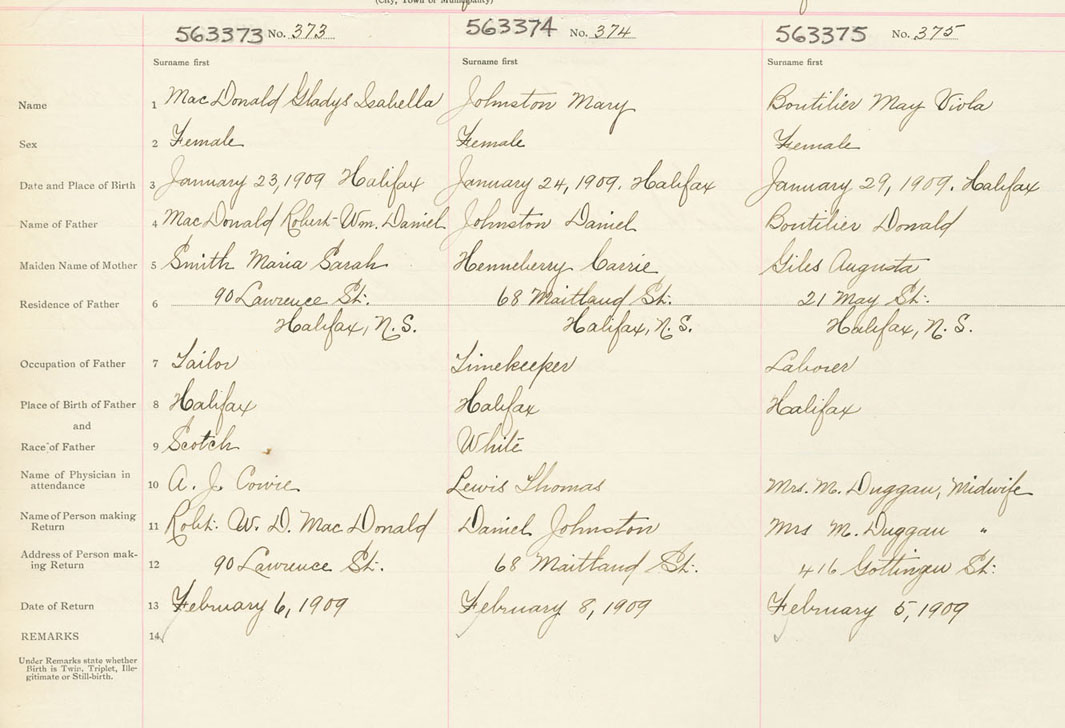 (City, Town or Municipality)
563373 No. 373 563374 No. 374 563375 No. 375
Surname first Surname first Surname first
Name 1 MacDonald Gladys Isabella Johnston Mary Boutilier May Viola
Sex 2 Female Female Female
Date and Place of Birth 3 January 23, 1909 Halifax January 24, 1909. Halifax January 29, 1909. Halifax
Name of Father 4 MacDonald Robert Wm. Daniel Johnston Daniel Boutilier Donald
Maiden Name of Mother 5 Smith Maria Sarah Henneberry Carrie Giles Augusta
Residence of Father 6 90 Lawrence St. 68 Maitland St. 21 May St.
Halifax, N.S. Halifax, N.S. Halifax, N.S.
Occupation of Father 7 Tailor Timekeeper Laborer
Place of Birth of Father 8 Halifax Halifax Halifax
and
Race of Father 9 Scotch White
Name of Physician in
attendance 10 A. J. Cowie Lewis Thomas Mrs. M. Duggan, Midwife
Name of Person making
Return 11 Robt. W. D. MacDonald Daniel Johnston Mrs M. Duggan "
Address of Person mak-
ing Return 12 90 Lawrence St. 68 Maitland St. 416 Gottingen St.
Date of Return 13 February 6, 1909 February 8, 1909 February 5, 1909
REMARKS 14
Under Remarks state whether
Birth is Twin, Triplet, Ille-
gitimate or Still-birth.